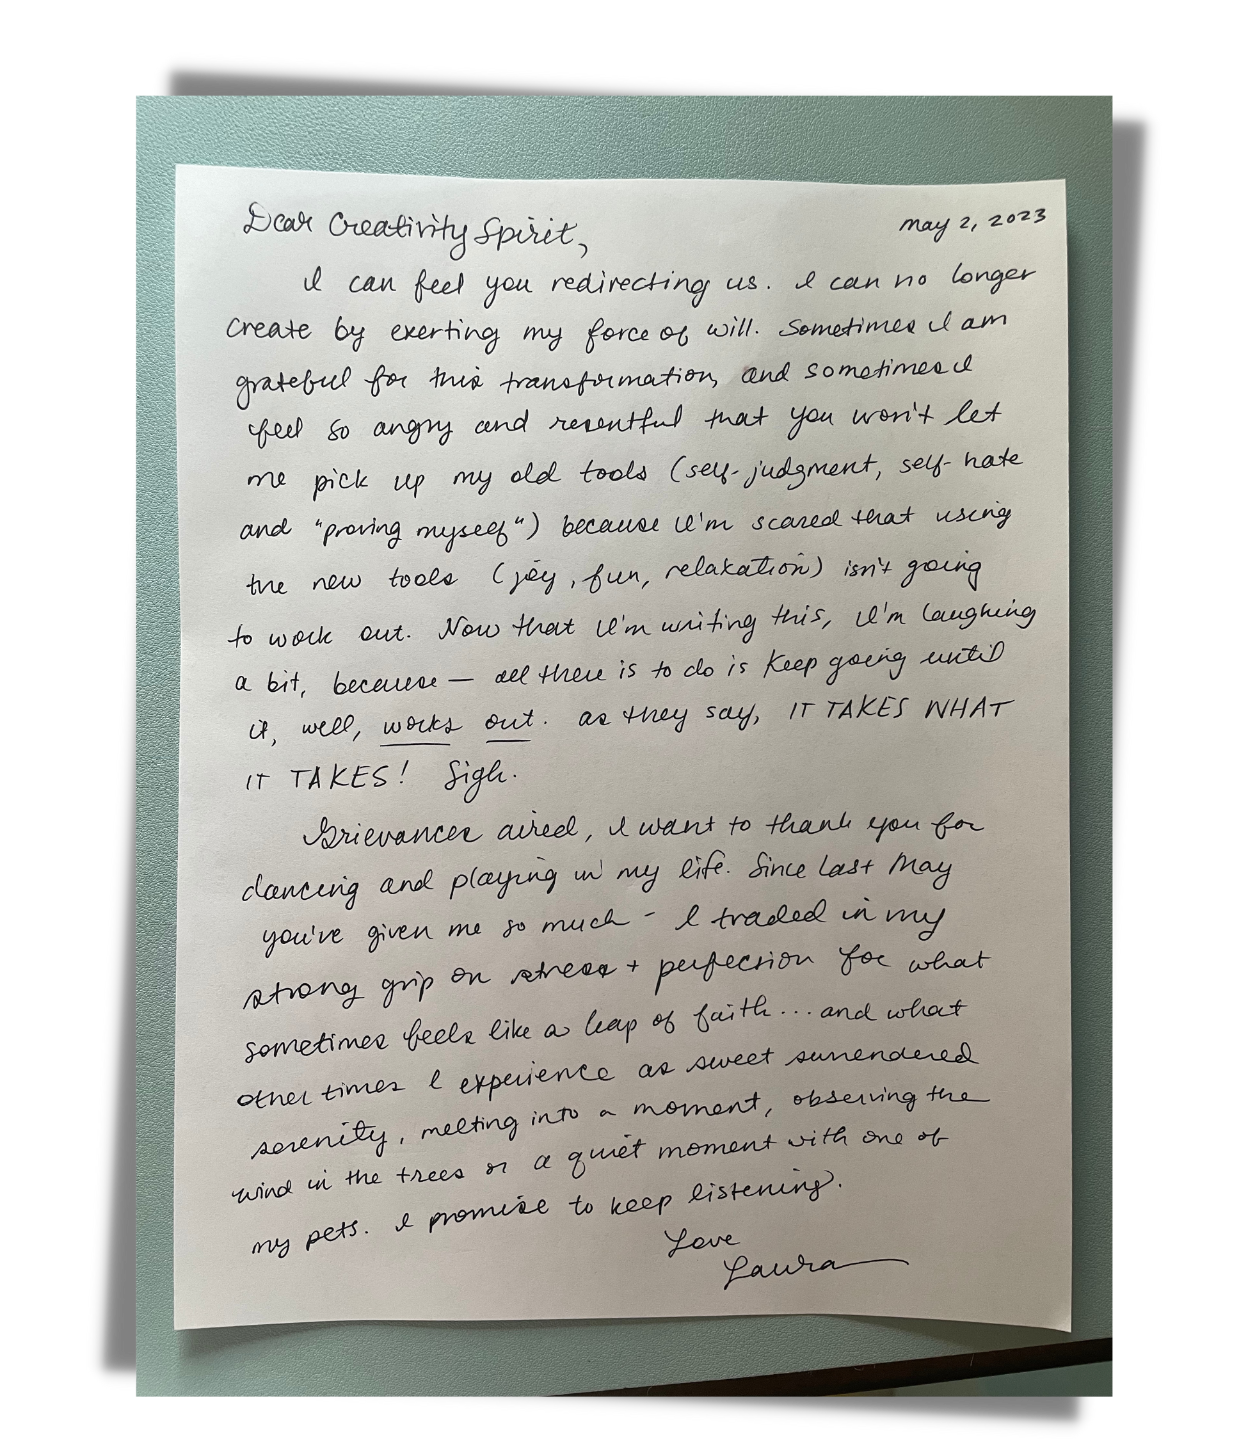 Dear Creativity Spirit,
May 2, 2023
I can feel you redirecting us. I can no longer
create by exerting my force of will. Sometimes I am
grateful for this transformation, and sometimes I
feel so angry and resentful that you won't let
me pick up my old tools (self-judgment, self-hate
and "proving myself") because I'm scared that using
the new tools (joy, fun, relaxation) isn't going
to work out. Now that I'm writing this, I'm laughing
a bit, because — all there is to do is keep going until
it, well, works out. As they say, IT TAKES WHAT
IT TAKES! Sigh.
Grievances aired, I want to thank you for
dancing and playing in my life. Since last May
you've given me so much - I traded in my
strong grip on stress + perfection for what
sometimes feels like a leap of faith... and what
other times I experience as sweet surrendered
serenity, melting into a moment, observing the
wind in the trees or a quiet moment with one of
my pets. I promise to keep listening.
Love
Laura